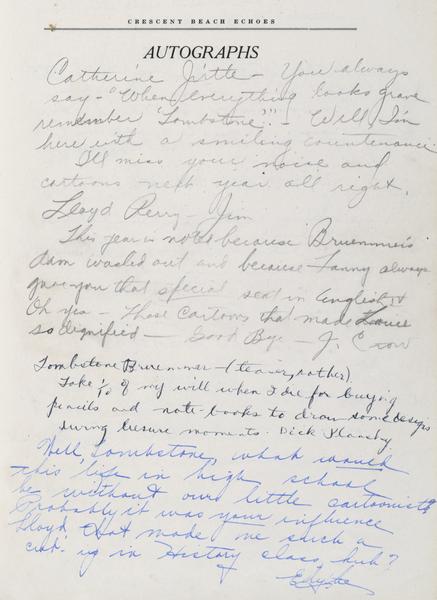 CRESCENT BEACH ECHOES
AUTOGRAPHS
Catherine – You always
say – "When everything looks grave
remember Tombstone!" – Well, I'm
here with a smiling countenance.
I'll miss your noise and
cartoons next year all right.
Lloyd Perry – Jim
This year is noted because Bruemmer's
dam washed out and because Fanny always
gave you that special seat in English IV
Oh yes – Those cartoons that made
so dignified – Good Bye – J. Crow
Tombstone Bruemmer – (teaser, rather)
Take 1/10 of my will when I die for buying
pencils and note-books to draw some designs
during liesure moments. Dick
Well, Tombstone, what would
this life in high school
be without our little cartoonist
Probably it was your influence
Lloyd that made me such a
cut-up in History class, huh?